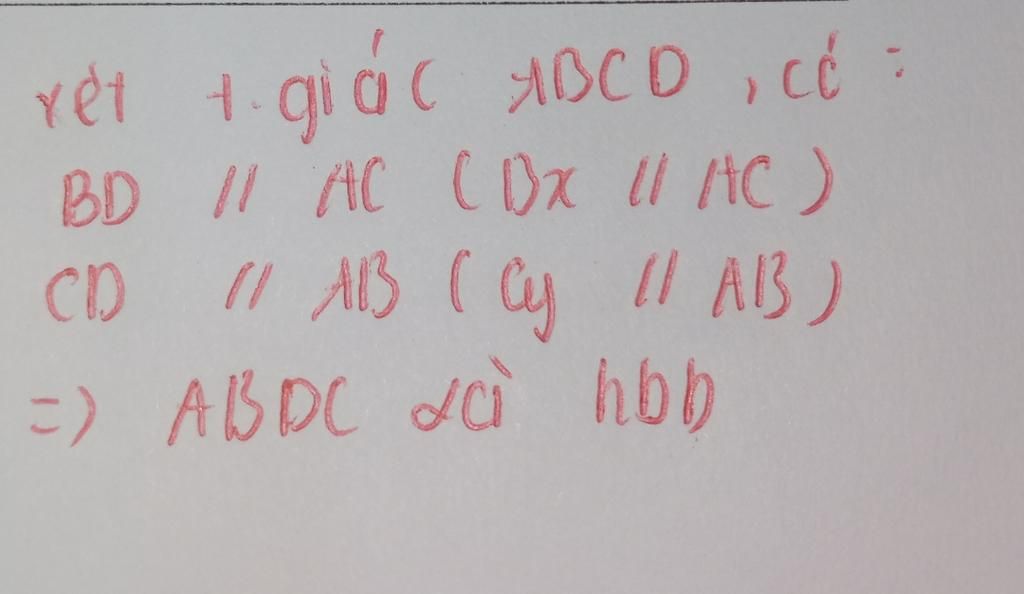 xét t.giác ABCD, có :
BD // AC (Bx // AC)
CD // AB (Cy // AB)
=> ABDC là hbh